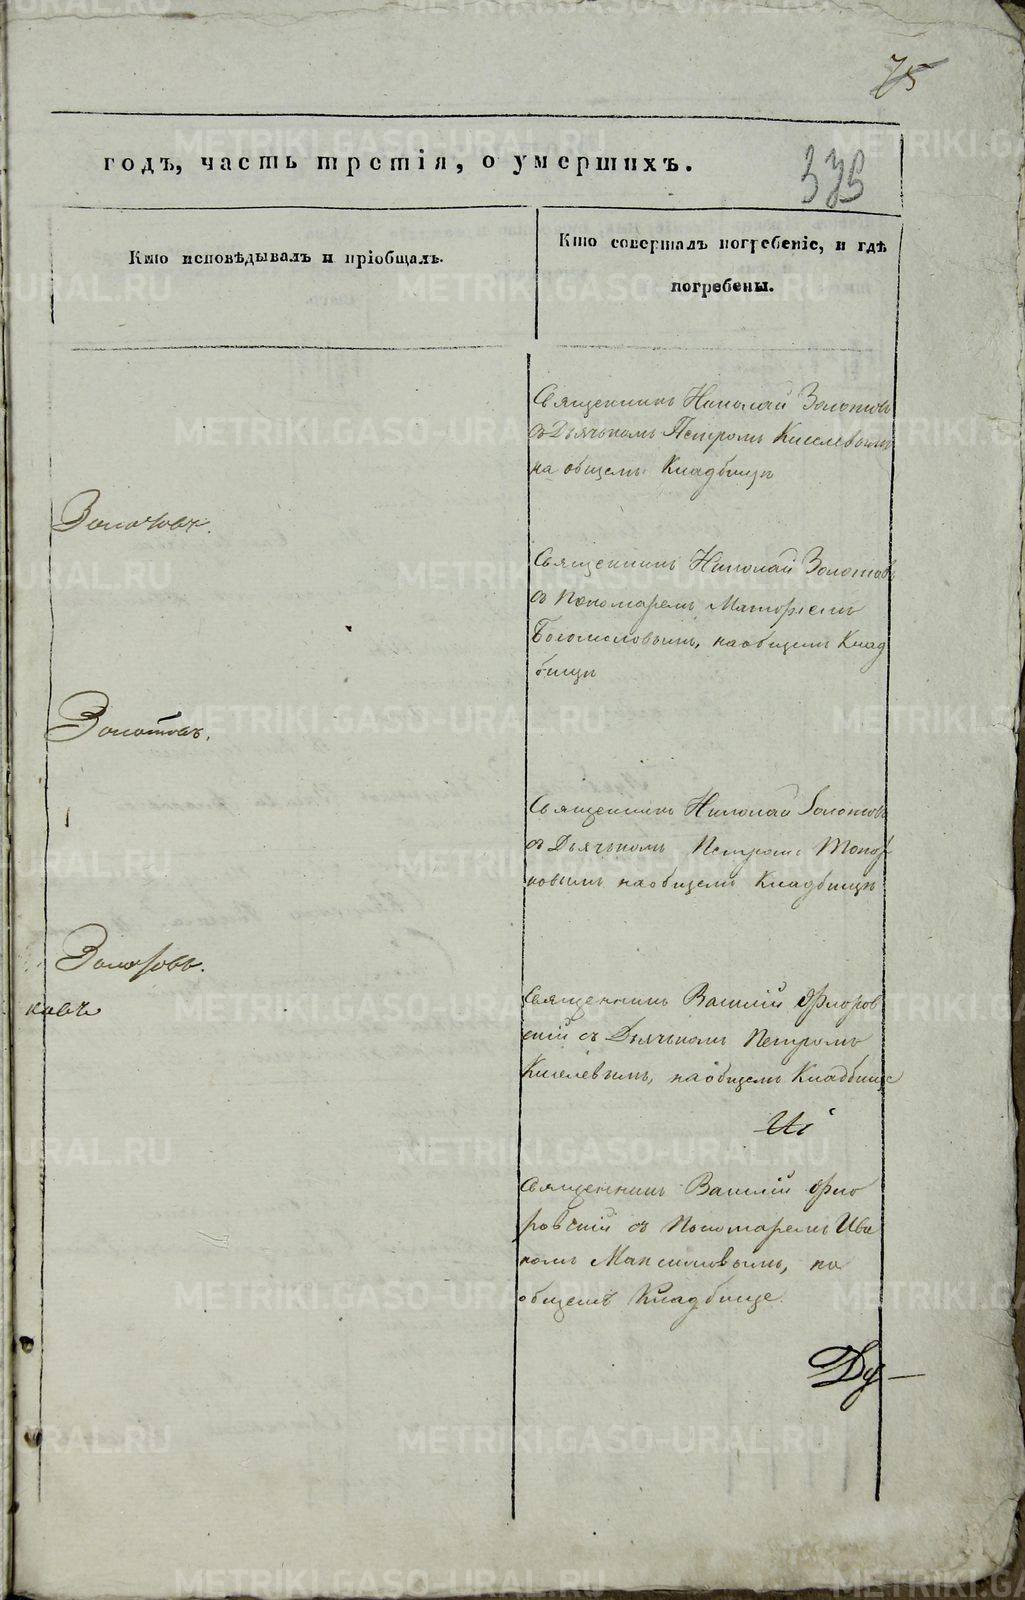 75
годъ, часть третія, о умершихъ.
Кто исповѣдывалъ и пріобщалъ.
Кто совершалъ погребеніе, и гдѣ
погребены.
Священникъ Николай Золотовъ
съ Дьячькомъ Петромъ Киселевымъ
на общемъ Кладбищѣ
Золотовъ.
Священникъ Николай Золотовъ
съ Пономаремъ
Богомоловымъ, на общемъ Клад
бищѣ
Золотовъ.
Священникъ Николай Золотовъ
съ Дьячькомъ Петромъ Топор
ковымъ на общемъ Кладбищѣ
Золотовъ.
ковъ
Священникъ Василій Флоров
скій съ Дьячькомъ Петромъ
Киселевымъ, на общемъ Кладбище
Священникъ Василій Фло
ровскій съ Пономаремъ Ива
номъ Максимовымъ, на
общемъ Кладбище.
Ду-
METRIKI.GASO-URAL.RU